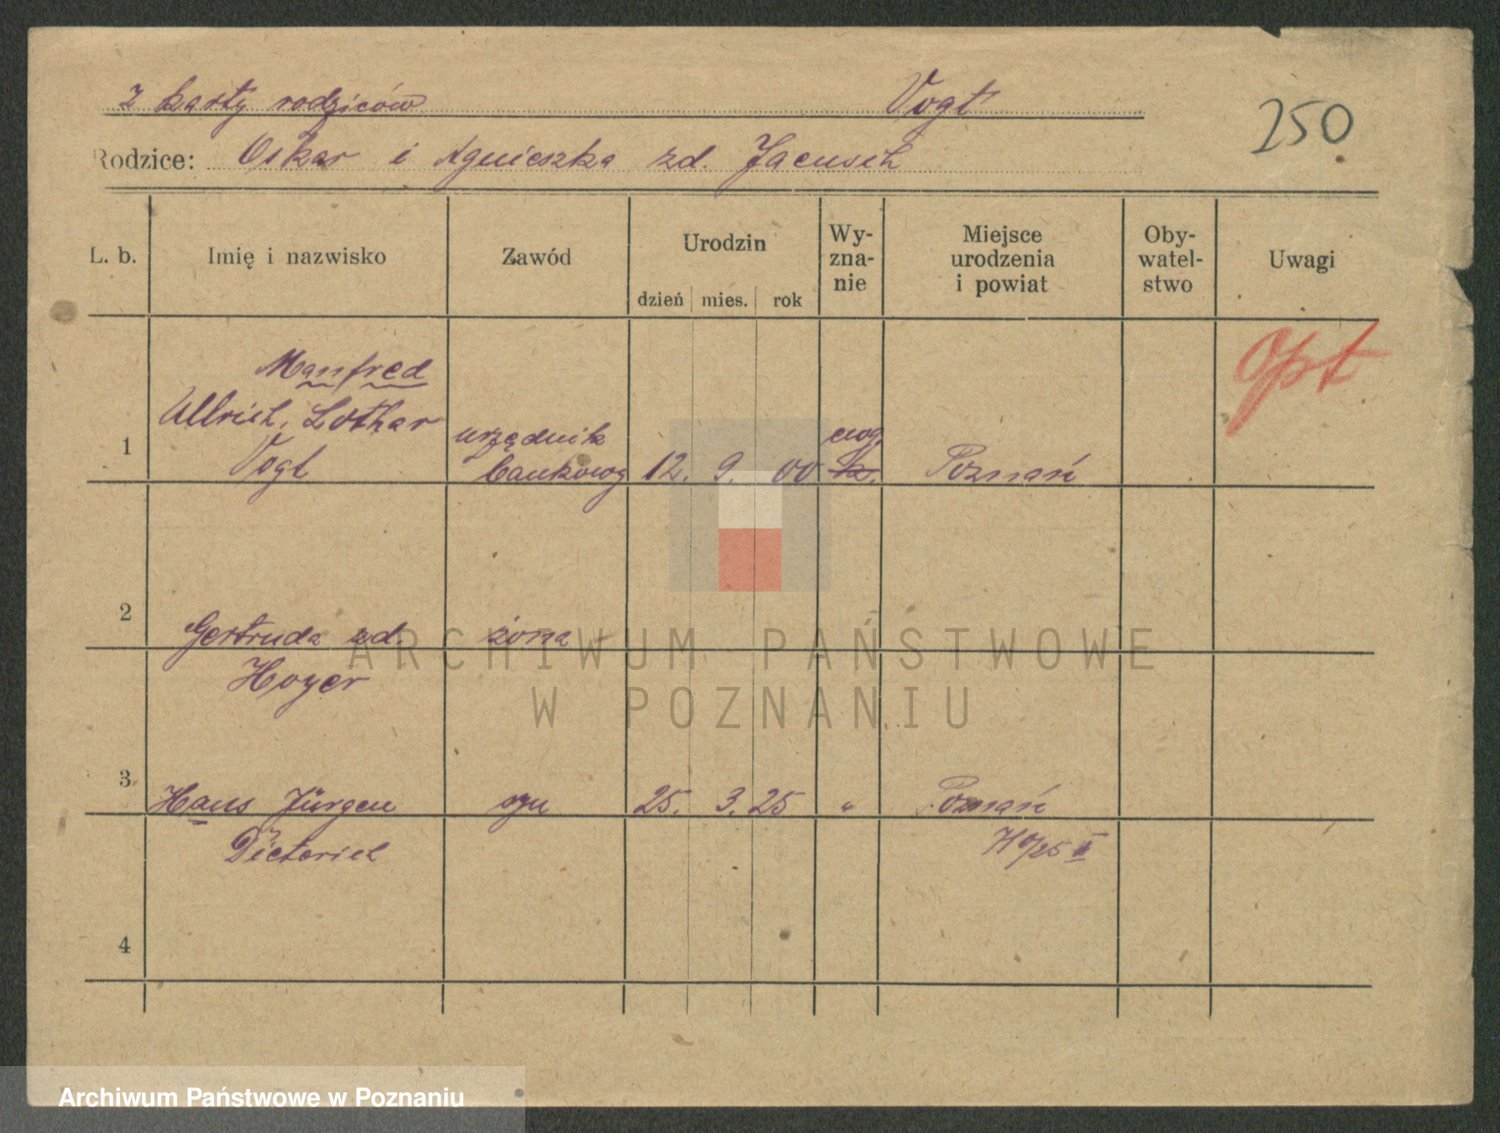 z karty rodziców Vogt
250
Rodzice: Oskar i Agnieszka zd.
L. b. Imię i nazwisko Zawód Urodzin Wy-zna-nie Miejsce urodzenia i powiat Oby-watel-stwo Uwagi
dzień mies. rok
Opt
Manfred
Ullrich, Lothar
1 Vogt urzędnik bankowy 12. 9. 00 ewg. Poznań
2 Gertruda zd. żona
Hoyer
3 Hans Jürgen syn 25. 3. 25 " Poznań
Dieterich
4
ARCHIWUM PAŃSTWOWE
W POZNANIU
Archiwum Państwowe w Poznaniu